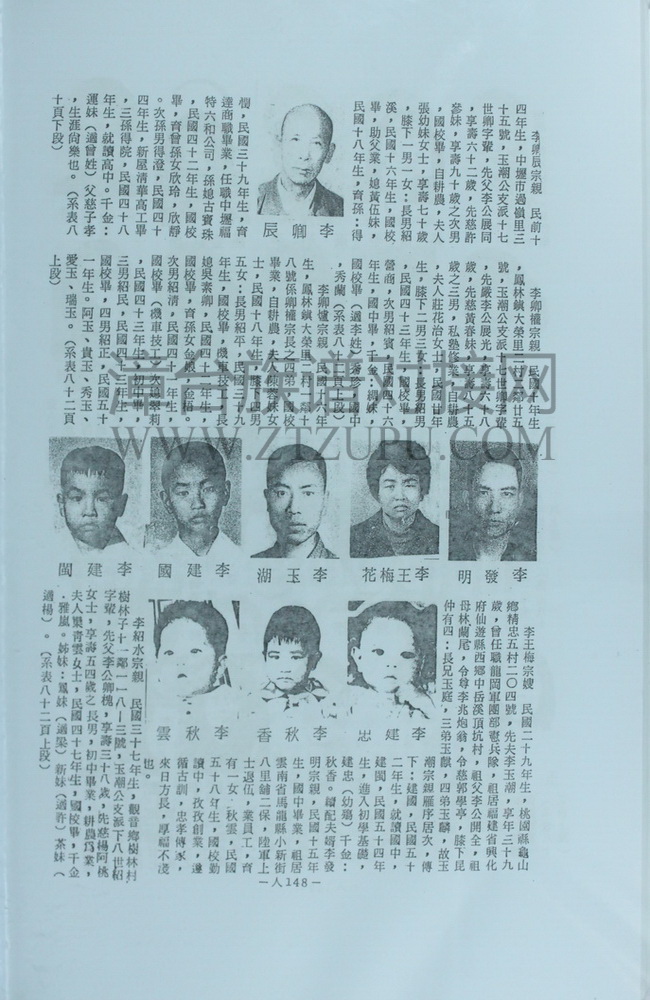 李卿辰宗親　民前十
四年生，中壢市過嶺里三
十五號，玉潮公支派十七
世卿字輩，先父李公展同
，享壽六十二歲，先慈許
參妹，享壽九十歲之次男
，國校畢，自耕農，夫人
張幼妹女士，享壽七十歲
，膝下一男一女：長男紹
溪，民國十六年生，國校
畢，助父業，媳黃伍妹，
民國十八年生，育孫：得
李卿辰
，民國三十九年生，育
達商職畢業，任職中壢福
特六和公司，孫媳古寶珠
，民國四十二年生，國校
畢，育曾孫女欣玲，欣靜
。次孫男得澄，民國四十
四年生，新屋清華高工畢
，三孫得院，民國四十八
年生，就讀高中。千金：
運妹（適曾姓）父慈子孝
，生涯尙樂也。（系表八
十頁下段）
李卿權宗親　民國十年生
，鳳林鎭大榮里二村三鄰廿五
號，玉潮公支派十七世卿字輩
，先嚴李公展光，享壽六十八
歲，先慈黃春妹，享壽八十五
歲之三男，私塾修業，自耕農
，夫人莊花治女士，民國廿年
生，膝下二男三女：長男紹男
，民國四十三年生，國校畢，
營商，次男紹賓，民國四十六
年生，國中畢，千金：綢妹，
國校畢（適李姓）秀珍，國中
，秀蘭（系表八十二頁上段）
李卿爐宗親　民國十六年
生，鳳林鎭大榮里二村三鄰十
八號係卿權宗長之四弟，國校
畢業，自耕農，夫人陳蓉妹女
士，民國十八年生，膝下四男
五女：長男紹平，民國三十九
年生，國校畢，機車技工，長
媳吳素卿，民國四十一年生，
國校畢，育孫女金娘，金梧。
次男紹清，民國四十一年生，
國校畢（機車技工）次媳翠莉
，民國四十三年生，初中畢，
三男紹民，民國四十三年生，
國校畢，四男紹正，民國五十
一年生。阿玉、貴玉、秀玉、
愛玉、瑞玉。（系表八十二頁
上段）
譜台族譜对接网
WWW.ZTZUPU.COM
李發明
李王梅花
李玉湖
李建國
李建閩
李建忠
李秋香
李秋雲
李王梅宗嫂　民國二十九年生，桃園縣龜山
鄉精忠五村二〇四號，先夫李玉潮，享年三十九
歲，曾任職龍岡軍團部憲兵隊，祖居福建省興化
府仙遊縣西鄉中岳溪頂坑村，祖父李公開全，祖
母林蘭尾，令尊李兆炮翁，令慈郭學亭，膝下昆
仲有四：長兄玉庭，三弟玉麒，四弟玉麟，故玉
潮宗親雁序居次，傳
下：建國，民國五十
二年生，就讀國中，
建閩，民國五十四年
生，進入初學基礎，
建忠（幼塾）千金：
秋香。續配夫婿李發
明宗親，民國十五年
生，國中畢業，祖居
雲南省馬龍縣小新街
八里舖二保，陸軍上
士退伍，業員工，育
有一女：秋雲，民國
五十八年生，國校勤
讀中，孜孜創業，遵
循古訓，忠孝傳家，
來日方長，厚福不淺
也。
李紹水宗親　民國三十七年生，觀音鄉樹林村
樹林子十一鄰一一八—三號，玉潮公支派下八世紹
字輩，先父李公卿槐，享壽三十八歲，先慈楊阿桃
女士，享壽五四歲之長男，初中畢業，耕農爲業，
夫人樂靑雲女士，民國四十七年生，國校畢，千金
：雅嵐。姊妹：鳳妹（適梁）新妹（適許）茶妹（
適楊）。（系表八十二頁上段）
－人148－